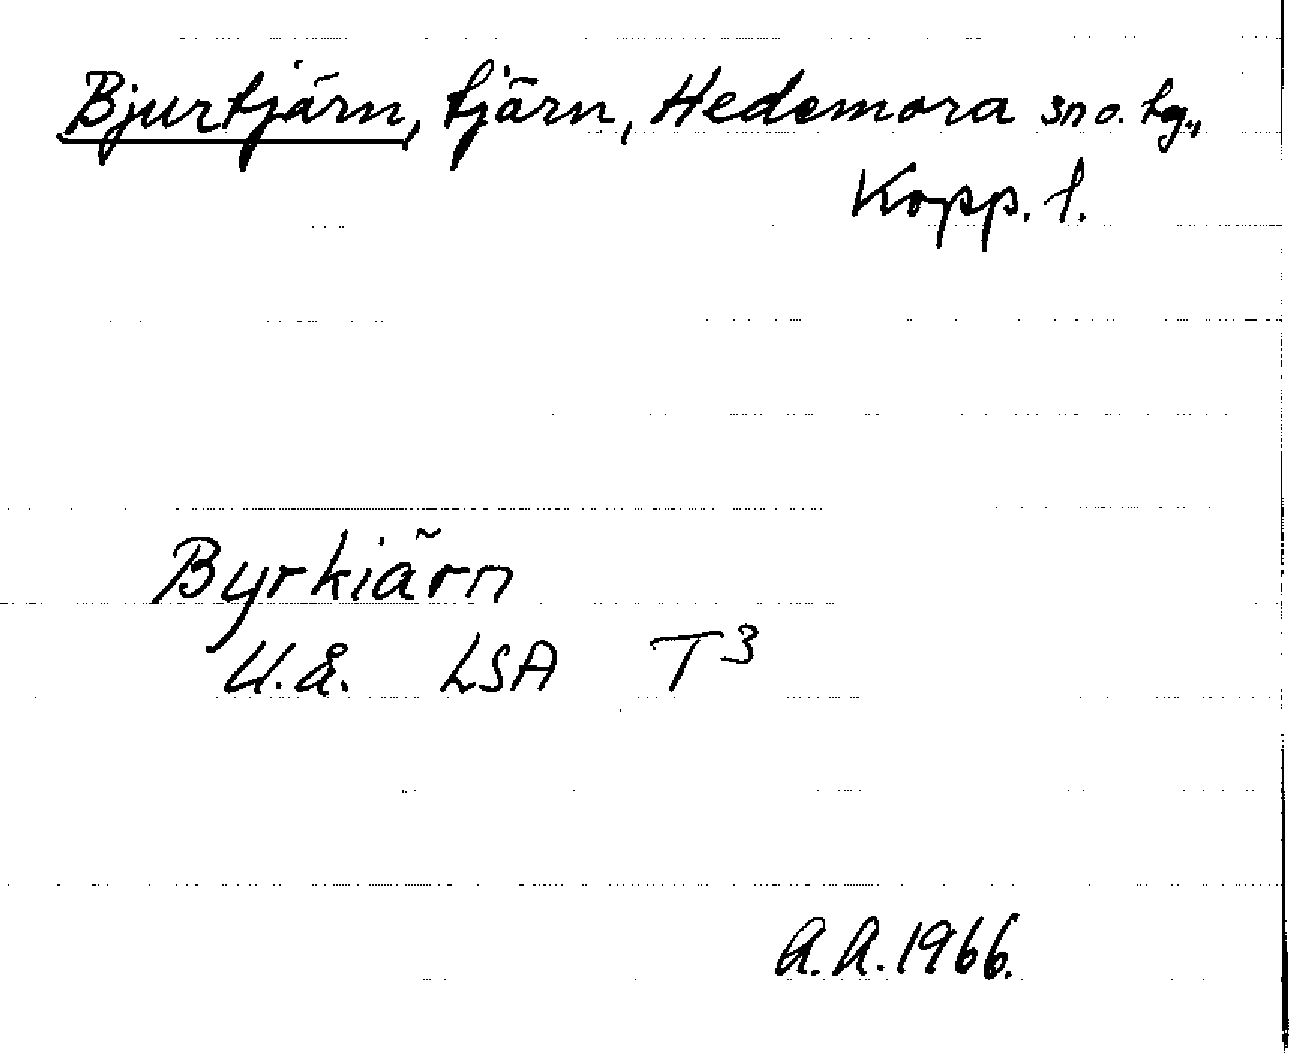 Bjurtjärn, tjärn, Hedemora sn o. hg.,
Kopp. l.
Byrkiärn
U.å. LSA T3
A.A. 1966.